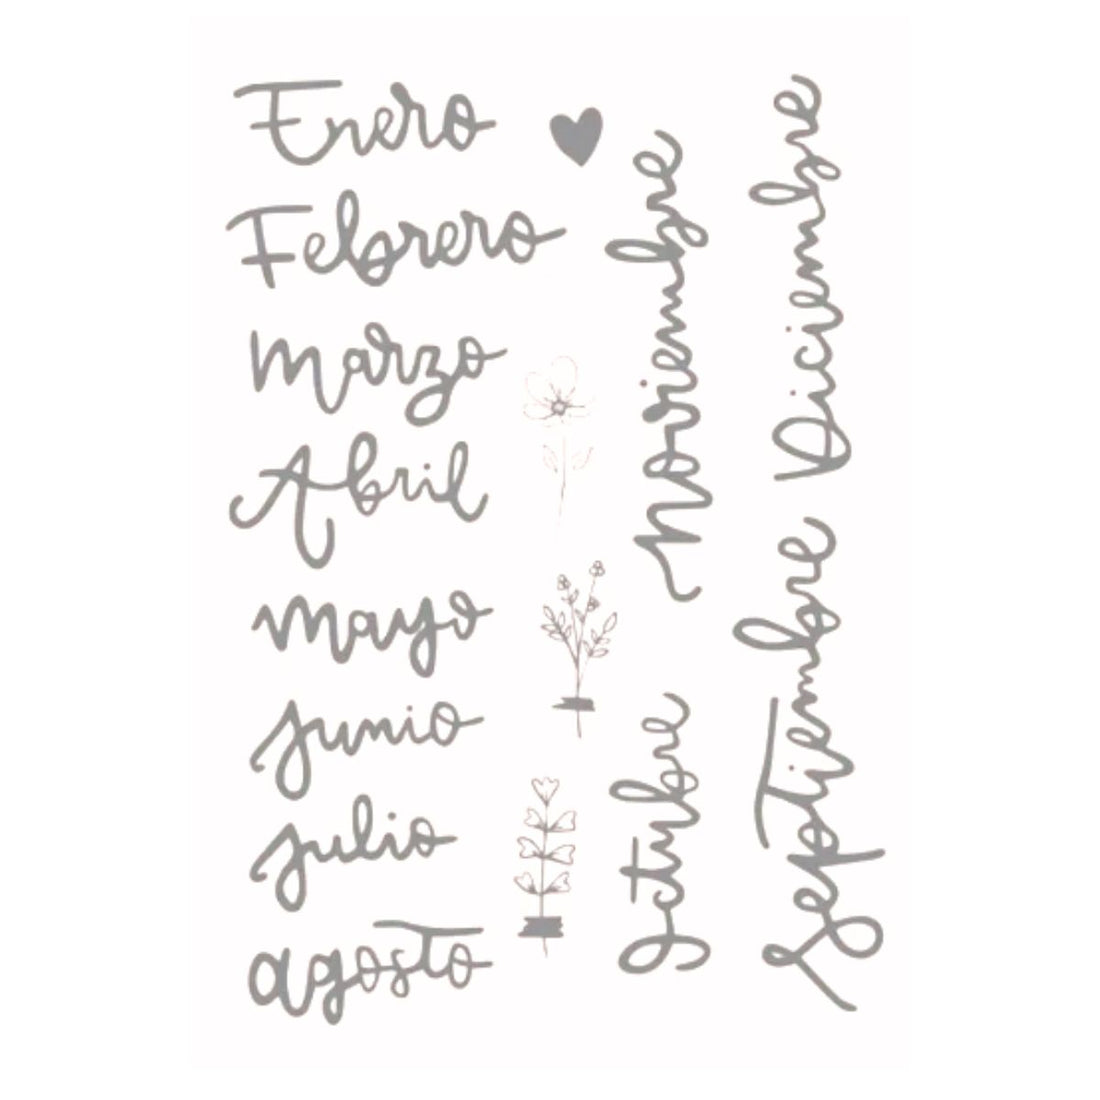 Enero
Febrero
marzo
Abril
mayo
junio
julio
agosto
Septiembre
octubre
noviembre
Diciembre